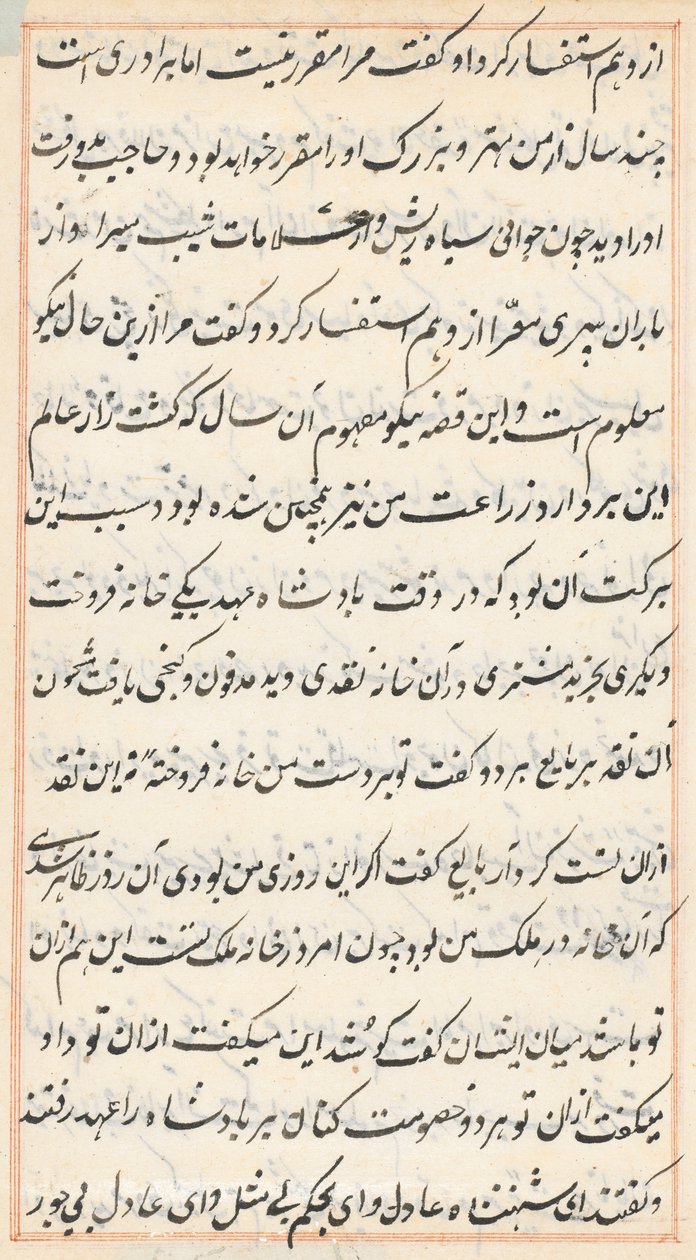 از وهم استفسار کرد او گفت مرا مقرر نیست اما برادری است
چند سال از من مهتر و بزرگ او را مقرر خواهد بود و حاجب بدو رفت
او را دید چون جوانی سیاه ریش و از علامات شیب مبرا و از
باران پیری معرّا از وهم استفسار کرد و گفت مرا ازین حال نیکو
معلوم است و این قصه نیکو مفهوم آن سال که کشت زار عالم
این بر دارد زراعت من نیز همچنین شده بود و سبب این
برکت آن بود که در وقت بادشاه عهد یکی خانه فروخت
دیگری بخرید مشتری در آن خانه نقدی دید مدفون و گنجی یافت مشحون
آن نقد بر بایع برد و گفت تو بر دست من خانه فروختهٔ نه این نقد
ازان تست کرد آر بایع گفت اگر این روزی من بودی آن روز ظاهر شدی
که آن خانه در ملک من بود چون امروز خانه ملک تست این هم ازان
تو باشد میان ایشان گفت گو شد این میگفت ازان تو و او
میگفت ازان تو هر دو خصومت کنان بر بادشاه را عهد رفتند
و گفتند ای شهنشاه عادل و ای بحکم بی مثل و ای عادل بی جور